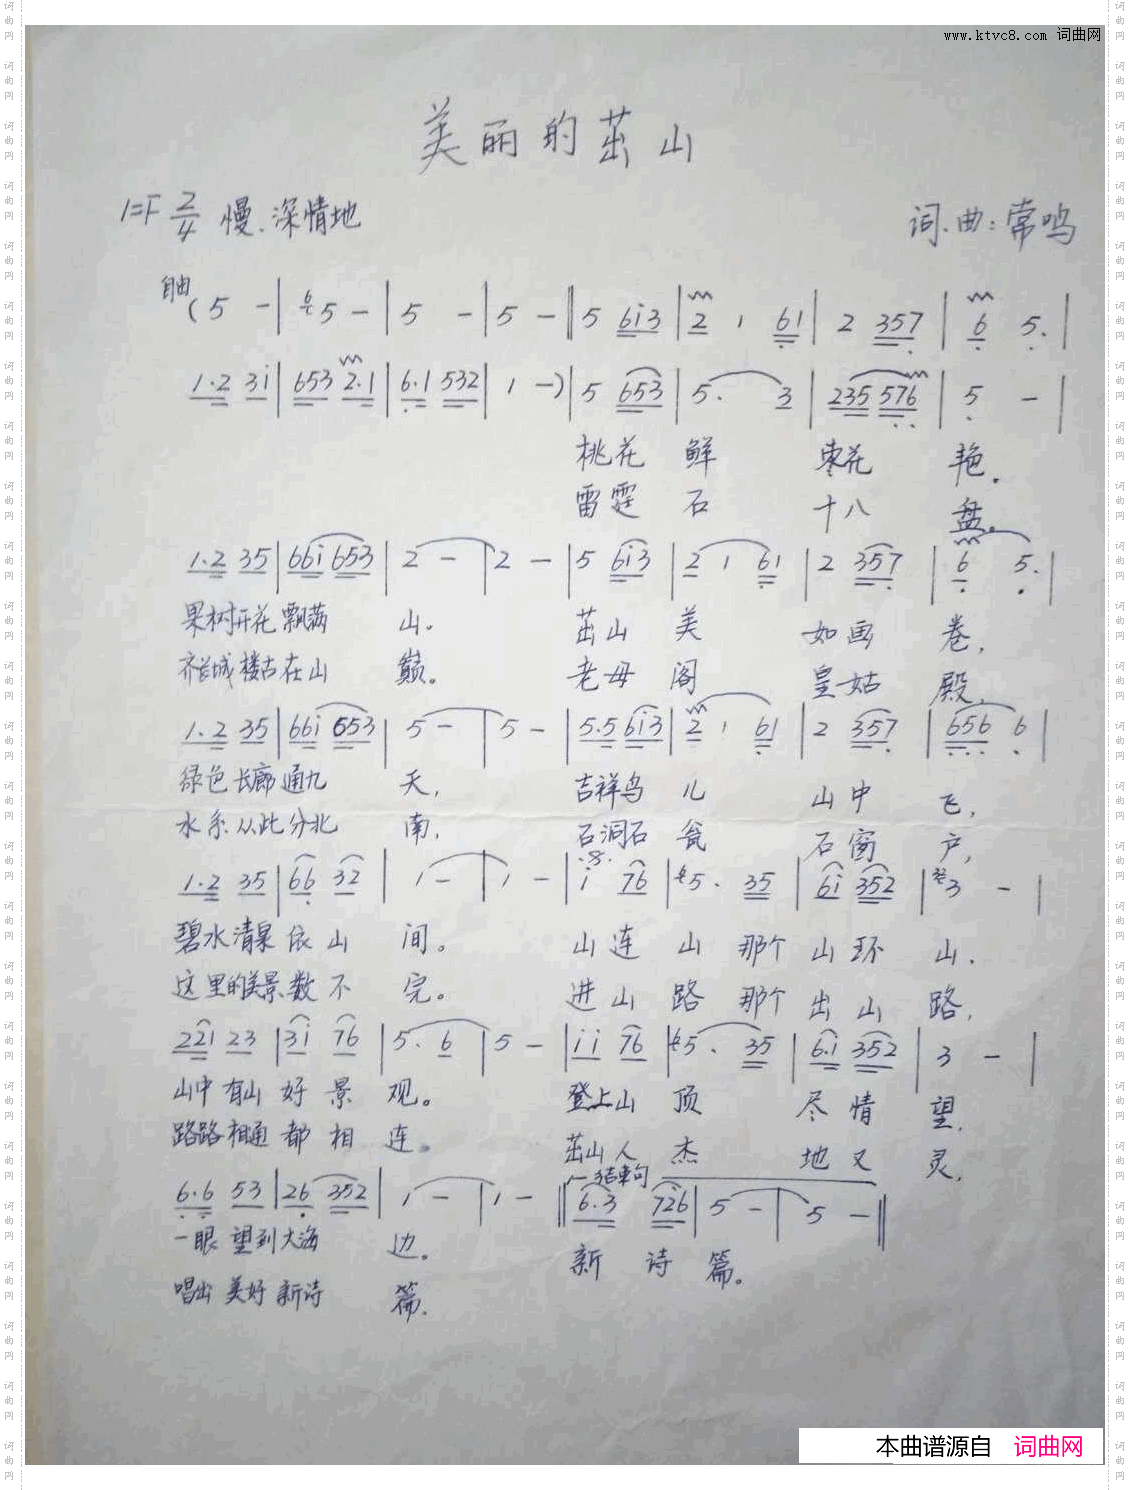 www.ktvc8.com 词曲网
美丽的茁山
1=F 2/4 慢、深情地
词、曲：常鸣
自由
(5 -| 5 -|5 -|5 -‖5 6i3|2 1 61|2 357|6 5.|
1.2 3i|653 2.1|6.1 532|1 -)|5 653|5. 3|235 576|5 -|
桃花 鲜 枣花 艳。
雷霆 石 十八 盘。
1.2 35|66i 653|2 -|2 -|5 6i3|2 1 61|2 357|6 5.|
果树开花飘满 山. 茁山 美 如画 卷,
齐长城楼古在山 巅。 老母 阁 皇姑 殿,
1.2 35|66i 653|5 -|5 -|5.5 6i3|2 1 61|2 357|656 6|
绿色长廊通九 天, 吉祥鸟 儿 山中 飞,
水系从此分北 南, 石洞石 瓮 石窗 户,
1.2 35|66 32|1 -|1 -|i 76|5. 35|6i 352|3 -|
碧水清泉依山 间。 山连 山 那个 山环 山.
这里的美景数不 完。 进山 路 那个 出山 路,
221 23|3i 76|5. 6|5 -|ii 76|5. 35|6.i 352|3 -|
山中有山好景 观。 登上山 顶 尽情 望,
路路相通都相 连。 茁山人 杰 地又 灵,
结束句
6.6 53|26 352|1 -|1 -‖6.3 726|5 -|5 -‖
一眼望到大海 边。 新诗篇。
唱出美好新诗 篇.
本曲谱源自 词曲网